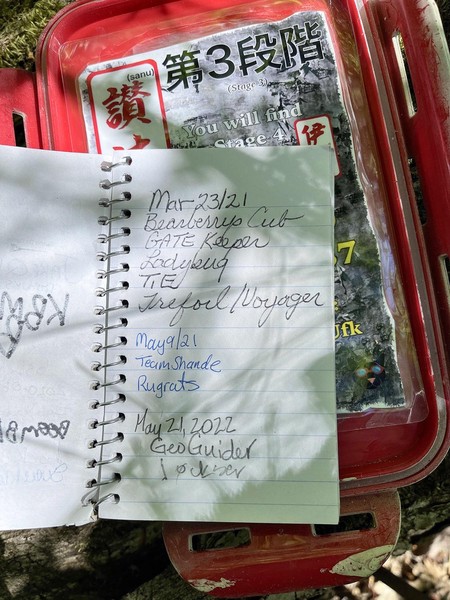 (sanu)
讃
第3段階
(Stage 3)
You will find
Stage 4
伊
7
Ufk
Mar 23/21
Bearberrys Cub
GATE Keeper
Ladybug
TIE
Trefoil/Voyager
May 9/21
TeamShande
Rugrats
May 21, 2022
GeoGuider